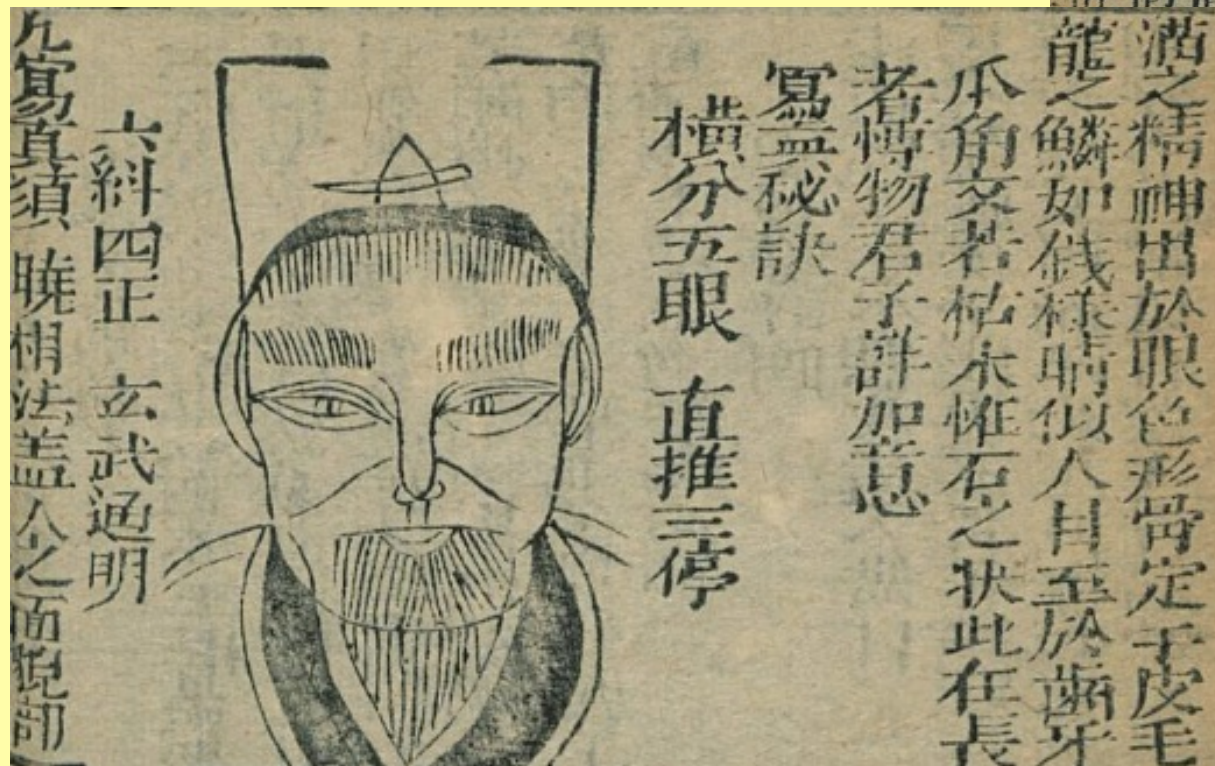 洒之精神出於眼色形骨定于皮毛
龍之鱗如錢樣睛似人目至於齒牙
爪角又若枯木怪石之状此在長
者博物君子詳加意
寫盖秘訣
橫分五眼 直推三停
六斜四正 玄武通明
凡寫真須曉相法盖人之面貌部